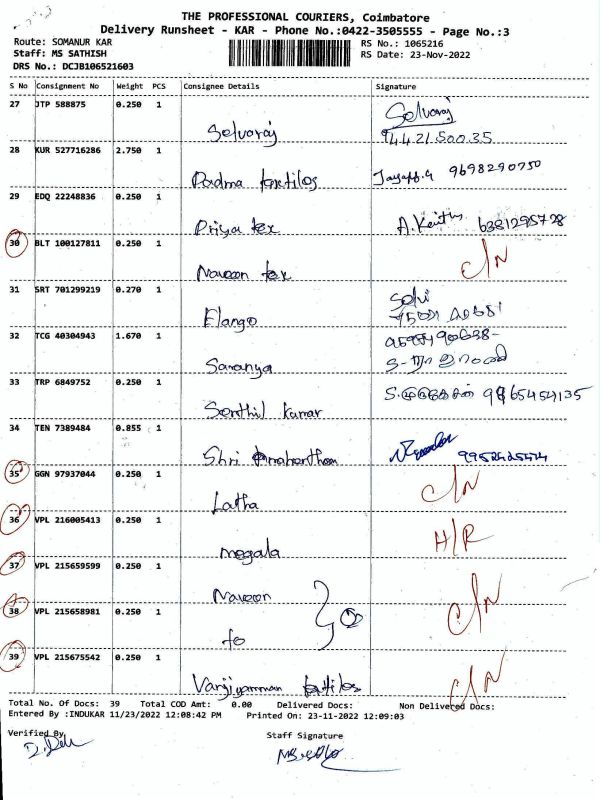 THE PROFESSIONAL COURIERS, Coimbatore
Delivery Runsheet - KAR - Phone No.:0422-3505555 - Page No.:3
Route: SOMANUR KAR
RS No.: 1065216
Staff: MS SATHISH
RS Date: 23-Nov-2022
DRS No.: DCJB106521603
S No Consignment No Weight PCS Consignee Details Signature
27 JTP 588875 0.250 1 Selvaraj Selvaraj
94421 50035
28 KUR 527716286 2.750 1 Padma 9698290750
29 EDQ 22248836 0.250 1 Priya tex 6381295728
30 BLT 100127811 0.250 1 Naveen tex C/N
31 SRT 701299219 0.270 1 Elango Selvi
32 TCG 40304943 1.670 1 Saranya
33 TRP 6849752 0.250 1 Senthil kumar 9865454135
34 TEN 7389484 0.855 1 Shri
35 GGN 97937044 0.250 1 Latha C/N
36 VPL 216005413 0.250 1 megala H/R
37 VPL 215659599 0.250 1 Naveen
38 VPL 215658981 0.250 1 to C/N
39 VPL 215675542 0.250 1 C/N
Total No. Of Docs: 39 Total COD Amt: 0.00 Delivered Docs: Non Delivered Docs:
Entered By :INDUKAR 11/23/2022 12:08:42 PM Printed On: 23-11-2022 12:09:03
Verified By
Staff Signature